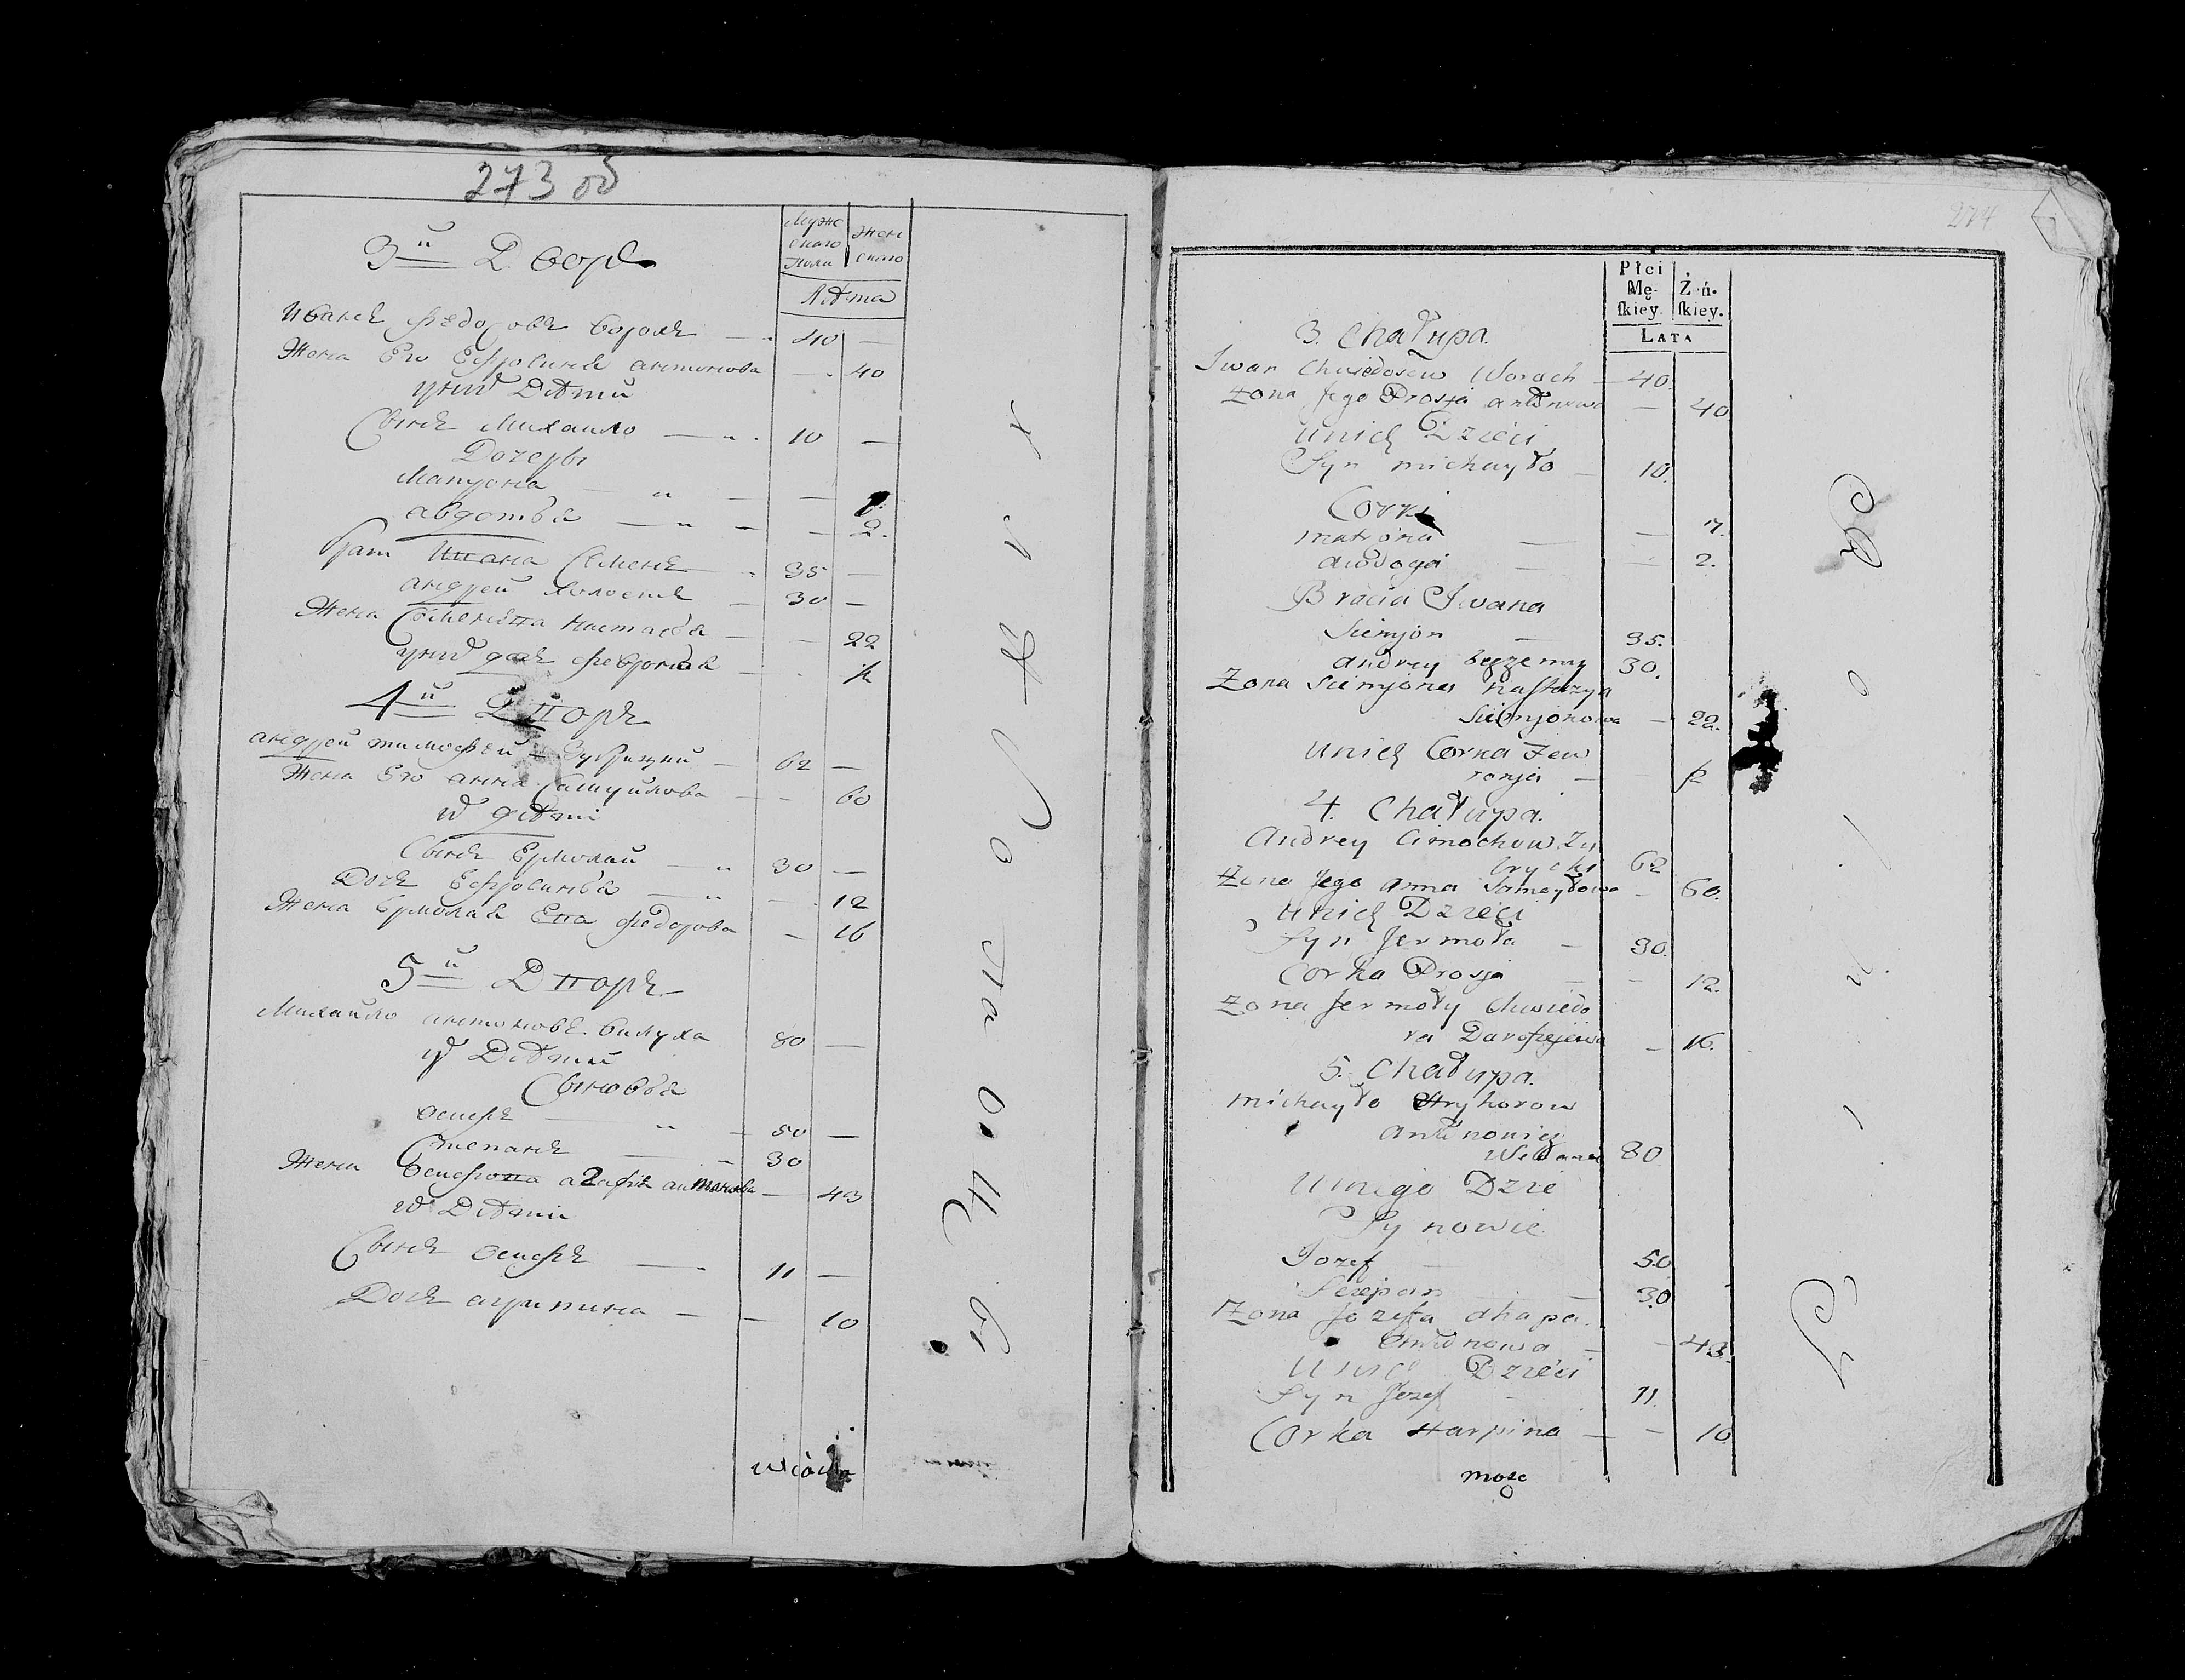 273 об
3й Дворъ
Муже
скаго
пола
Жен
скаго
Лѣта
Иванъ Федосовъ Ворохъ 40 —
Жена Его Ефросиния антонова — 40
у них Дѣти
Сынъ Михаило — 10 —
Дочеры
Матрона — —
авдотья — — 2.
брат Ивана Семенъ 35 —
андрей холостъ — 30 —
Жена Семенова Настасья — — 22
у них дочь феврония —
4й Дворъ
андрей тимофеи — 62 —
Жена Его анна Самуйлова — — 60
их дѣти
Сынъ Ермолай — 30 —
Дочь Ефросинья — — 12
Жена Ермолая Ева федорова — 16
5й Дворъ
Михайло антоновъ 80 —
их Дѣти
Сыновья
осипъ — 50 —
Степанъ — 30
Жена осипова агафия антонова — 43
их Дѣти
Сынъ осипъ — 11 —
Дочь агрипина — — 10
274
Płci
Mę-
skiey.
Żeń-
skiey.
LATA
3. Chałupa.
Iwan Chwiedosow Woroch — 40.
Żona Jego Prosja antonowa — 40
unich Dzieci
Syn michayło — 10.
Corki
matrona — — 7.
awdoga — — 2.
Bracia Iwana
Siemjon — 35.
andrey bezzenny 30.
Żona Siemjona nastazya
Siemjonowa — 22.
unich Corka Zew
ronja —
4. Chałupa.
Andrey Cimochow Zu
brycki 62
Żona Jego anna Samoyłowa — 60.
unich Dzieci
Syn Jermoła — 30.
Corka Prosja — — 12.
Żona Jermoły Chwiedo
ra Darofiejewa — 16.
5. Chałupa.
michayło Hryhorow
antonowicz
80
U niego Dzie
Synowie
Jozef 50
Sciepan — 30
Żona Jozefa ahapa.
antonowa — — 43.
Unich Dzieci
Syn Jozef - 11.
Corka Harpina — — 10
mośc